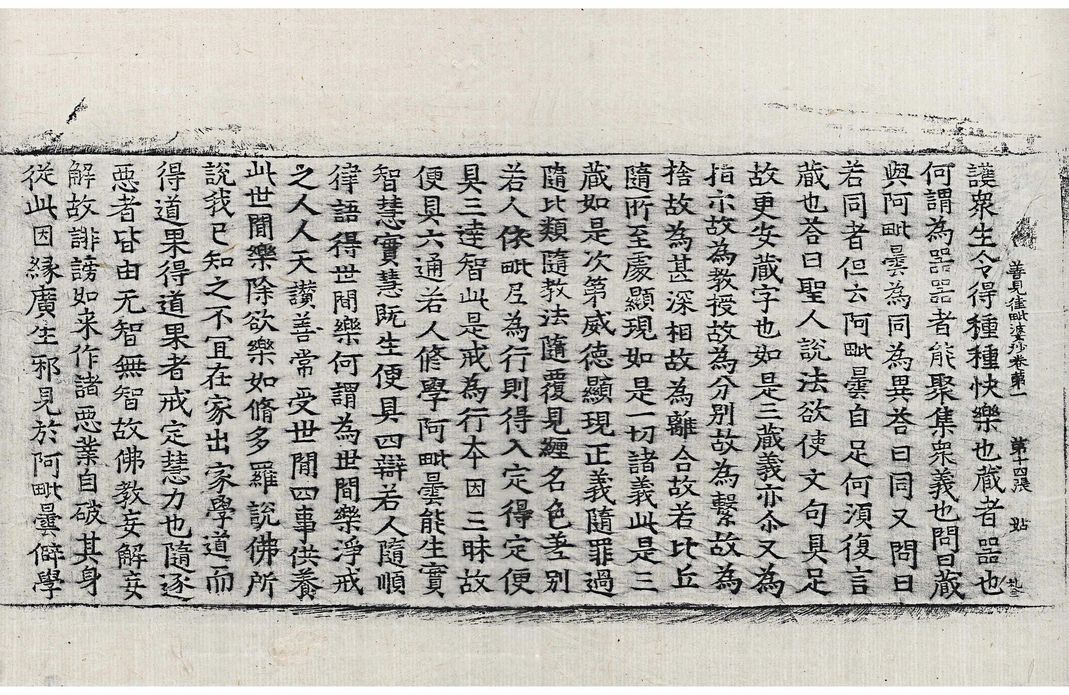 善見律毗婆沙卷第一 第十四張 㸃
護衆生令得種種快樂也蔵者器也
何謂為器器者能聚集衆義也問曰蔵
與阿毗曇為同為異荅曰同又問曰
若同者但云阿毗曇自足何湏復言
蔵也荅曰聖人說法欲使文句具足
故更安蔵字也如是三蔵義亦尒又為
指示故為教授故為分別故為繫故為
捨故為甚深相故為離合故若比丘
隨所至處顯現如是一切諸義此是三
蔵如是次第威徳顯現正義隨罪過
隨比類隨教法隨覆見纏名色差別
若人依毗尼為行則得入定得定便
具三逹智此是戒為行本因三昧故
便具六通若人修學阿毗曇能生實
智慧實慧既生便具四辯若人隨順
律語得世閒樂何謂為世間樂淨戒
之人人天讃善常受世閒四事供養
此世閒樂除欲樂如脩多羅說佛所
說我已知之不冝在家出家學道而
得道果得道果者戒定慧力也隨逐
惡者皆由无智無智故佛教妄解妄
解故誹謗如来作諸惡業自破其身
從此因縁廣生邪見於阿毗曇僻學